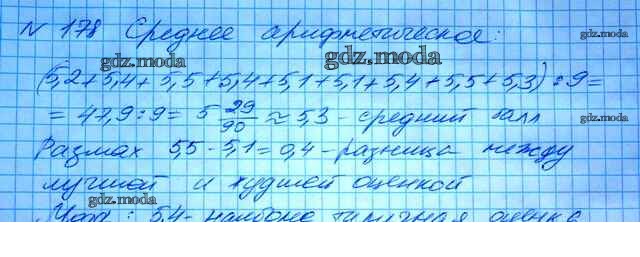 N 178 Среднее арифметическое:
gdz.moda
gdz.moda
(5,2+5,4+5,5+5,4+5,1+5,1+5,4+5,5+5,3):9=
gdz.moda
= 47,9:9= 5 29/90 ≈ 5,3 - средний балл
gdz.moda
gdz.moda
Размах 5,5-5,1=0,4 - разница между
gdz.moda
лучшей и худшей оценкой
gdz.moda
gdz.moda
Мода: 5,4 - наиболее типичная оценка